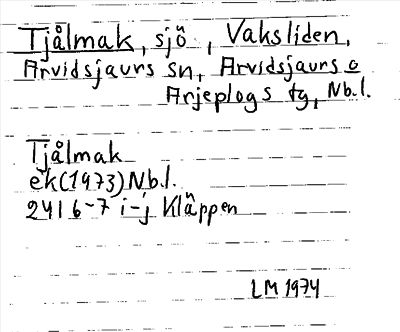 Tjålmak, sjö, Vaksliden,
Arvidsjaurs sn, Arvidsjaurs o
Arjeplogs tg, Nb.l.
Tjålmak
ek(1973)Nb.l.
24I 6-7 i-j Kläppen
LM 1974